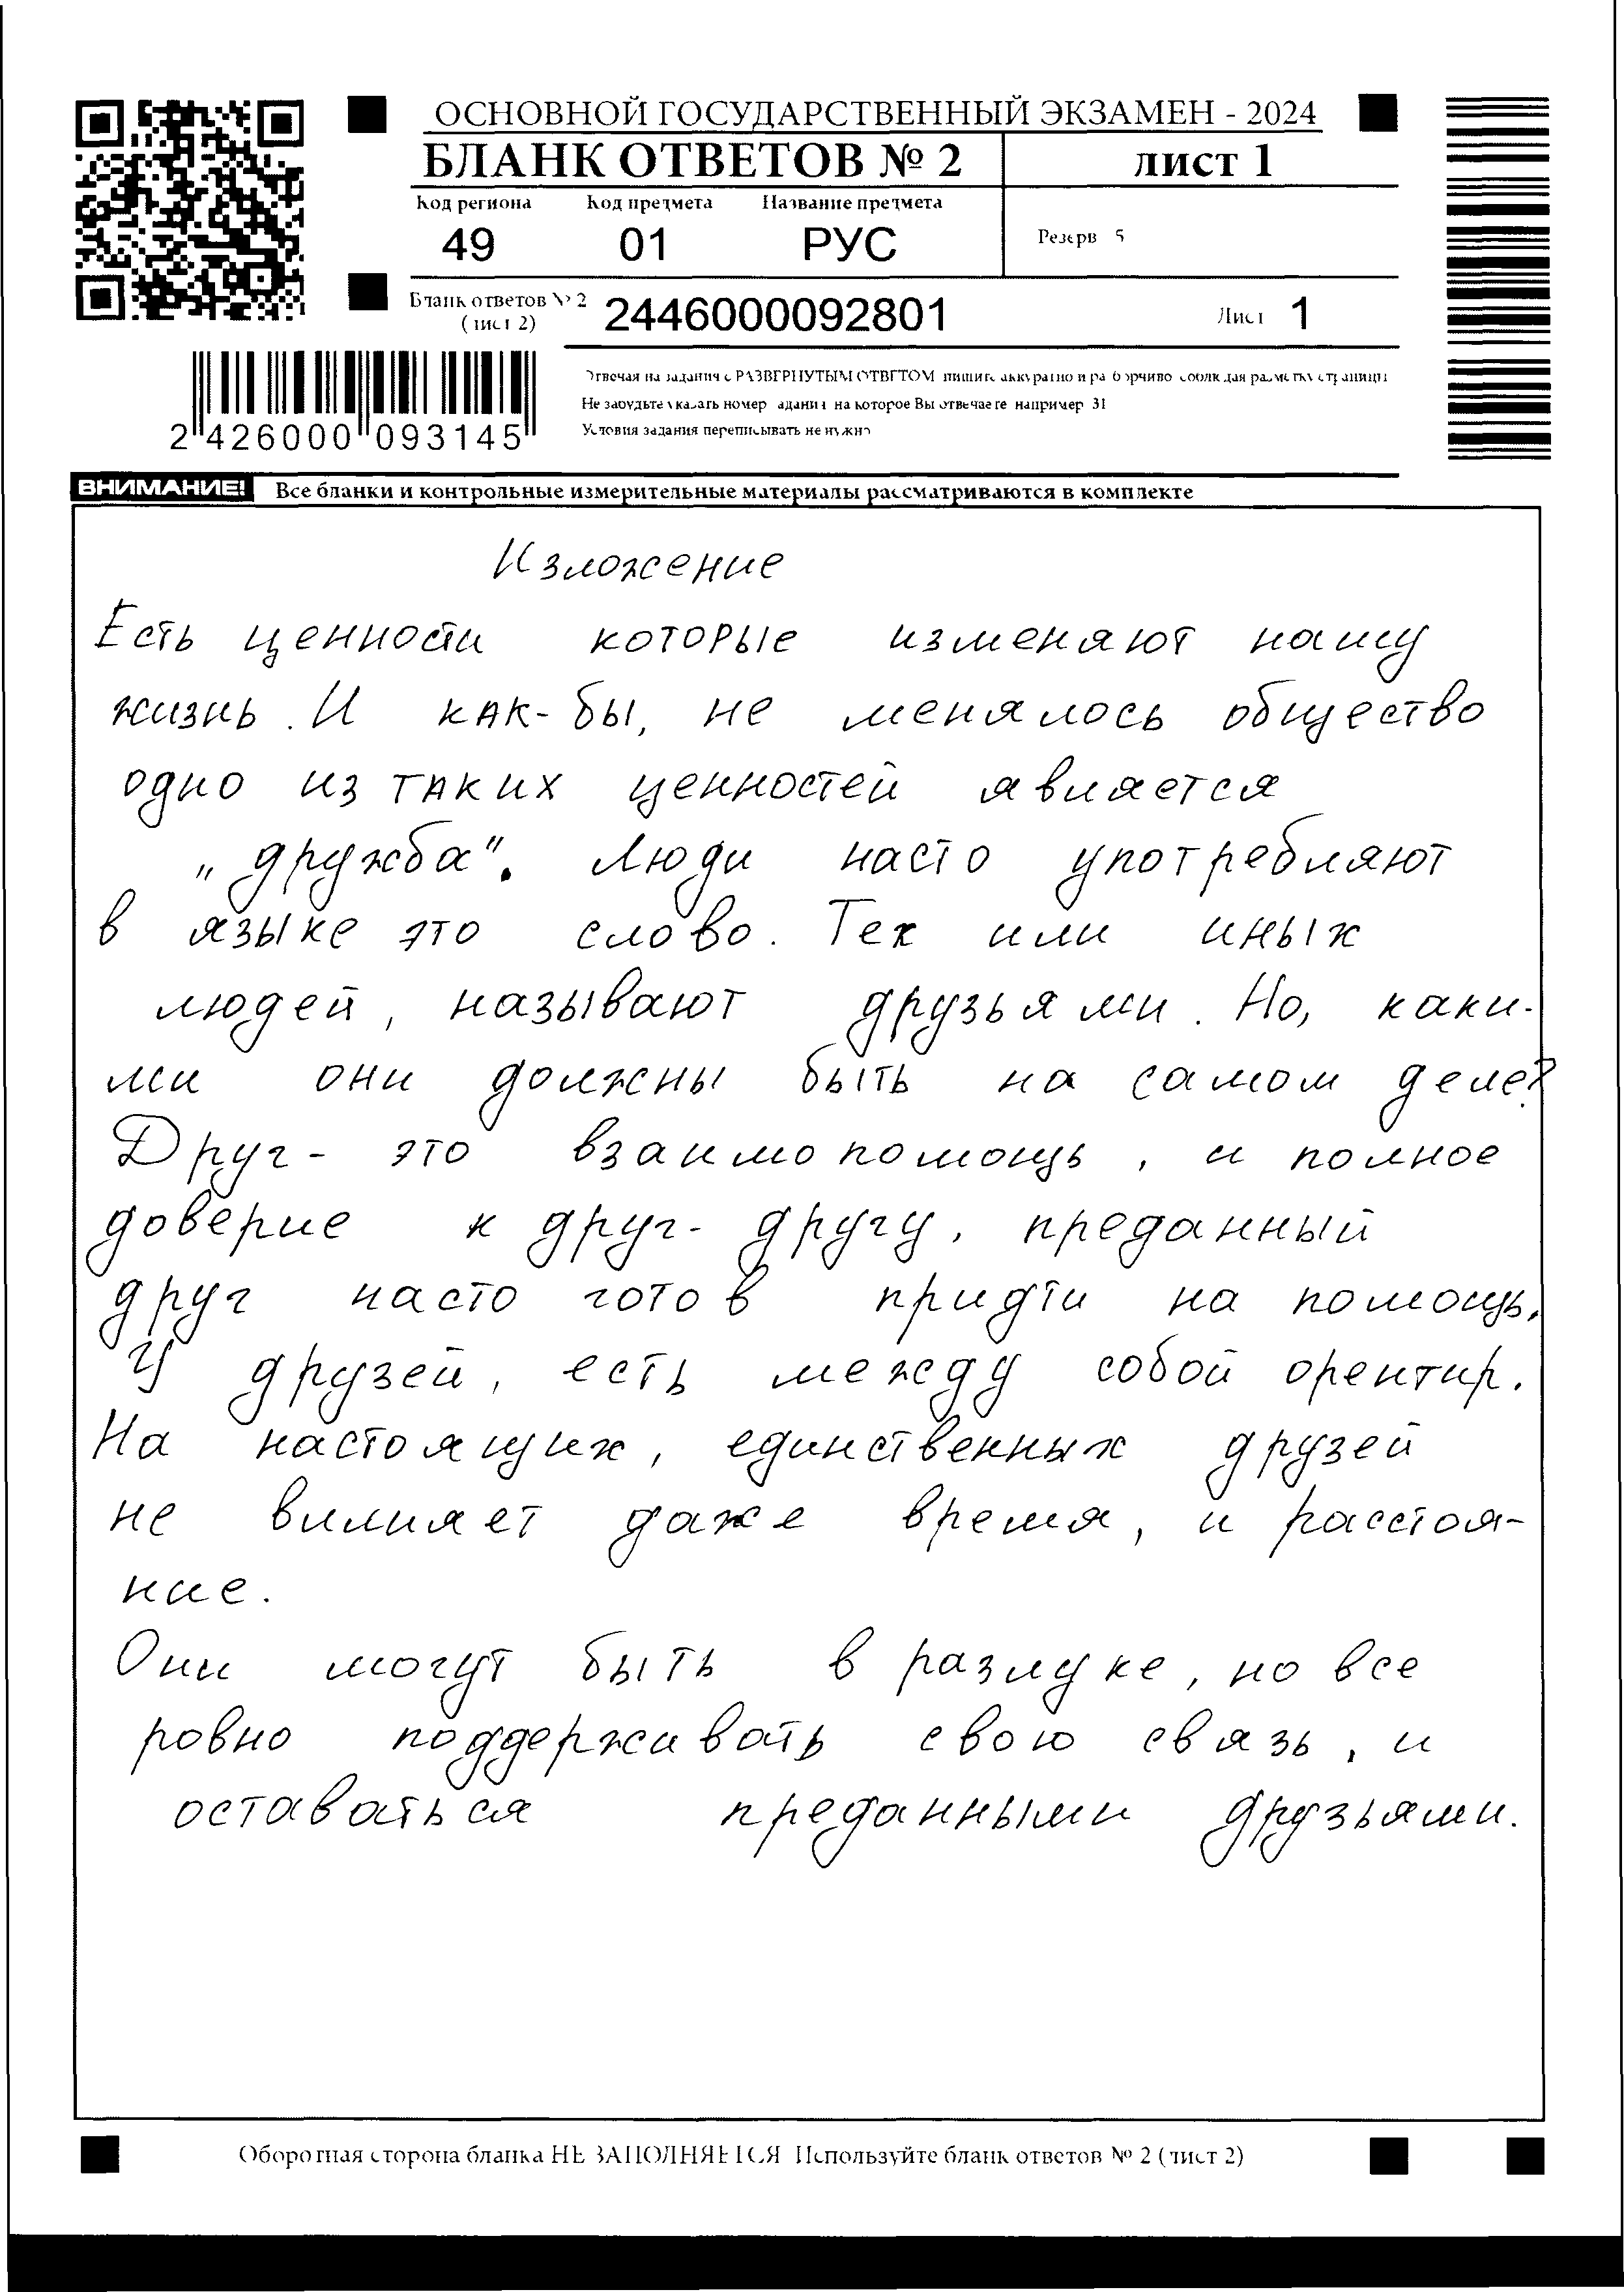 ОСНОВНОЙ ГОСУДАРСТВЕННЫЙ ЭКЗАМЕН - 2024
БЛАНК ОТВЕТОВ № 2 лист 1
Код региона Код предмета Название предмета
49 01 РУС Резерв 5
Бланк ответов № 2 (лист 2) 2446000092801 Лист 1
Отвечая на задания с РАЗВЕРНУТЫМ ОТВЕТОМ пишите аккуратно и разборчиво соблюдая разметку страницы
Не забудьте указать номер задания на которое Вы отвечаете например 31
Условия задания переписывать не нужно
2 426000 093145
ВНИМАНИЕ! Все бланки и контрольные измерительные материалы рассматриваются в комплекте
Изложение
Есть ценности которые изменяют нашу
жизнь. И как-бы, не менялось общество
одно из таких ценностей является
„дружба". Люди часто употребляют
в языке это слово. Тех или иных
людей, называют друзьями. Но, каки-
ми они должны быть на самом деле?
Друг- это взаимопомощь, и полное
доверие к друг-другу, преданный
друг часто готов придти на помощь.
У друзей, есть между собой орентир.
На настоящих, единственных друзей
не влилияет даже время, и расстоя-
ние.
Они могут быть в разлуке, но все
ровно поддерживать свою связь, и
оставаться преданными друзьями.
Оборотная сторона бланка НЕ ЗАПОЛНЯЕТСЯ Используйте бланк ответов № 2 (лист 2)